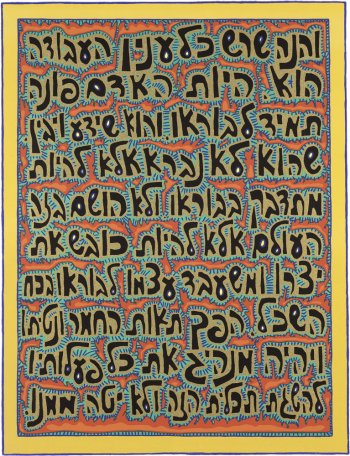 והנה שרש כל ענין העבודה
הוא היות האדם פונה
תמיד לבוראו והוא שידע ויבין
שהוא לא נברא אלא להיות
מתדבק בבוראו ולא הושם בזה
העולם אלא להיות כובש את
יצרו ומשעבד עצמו לבוראו בכח
השכל הפך תאות החמר ונטיתו
ויהיה מנהג את כל פעלותיו
להשגת תכלית הזה ולא יטה ממנו